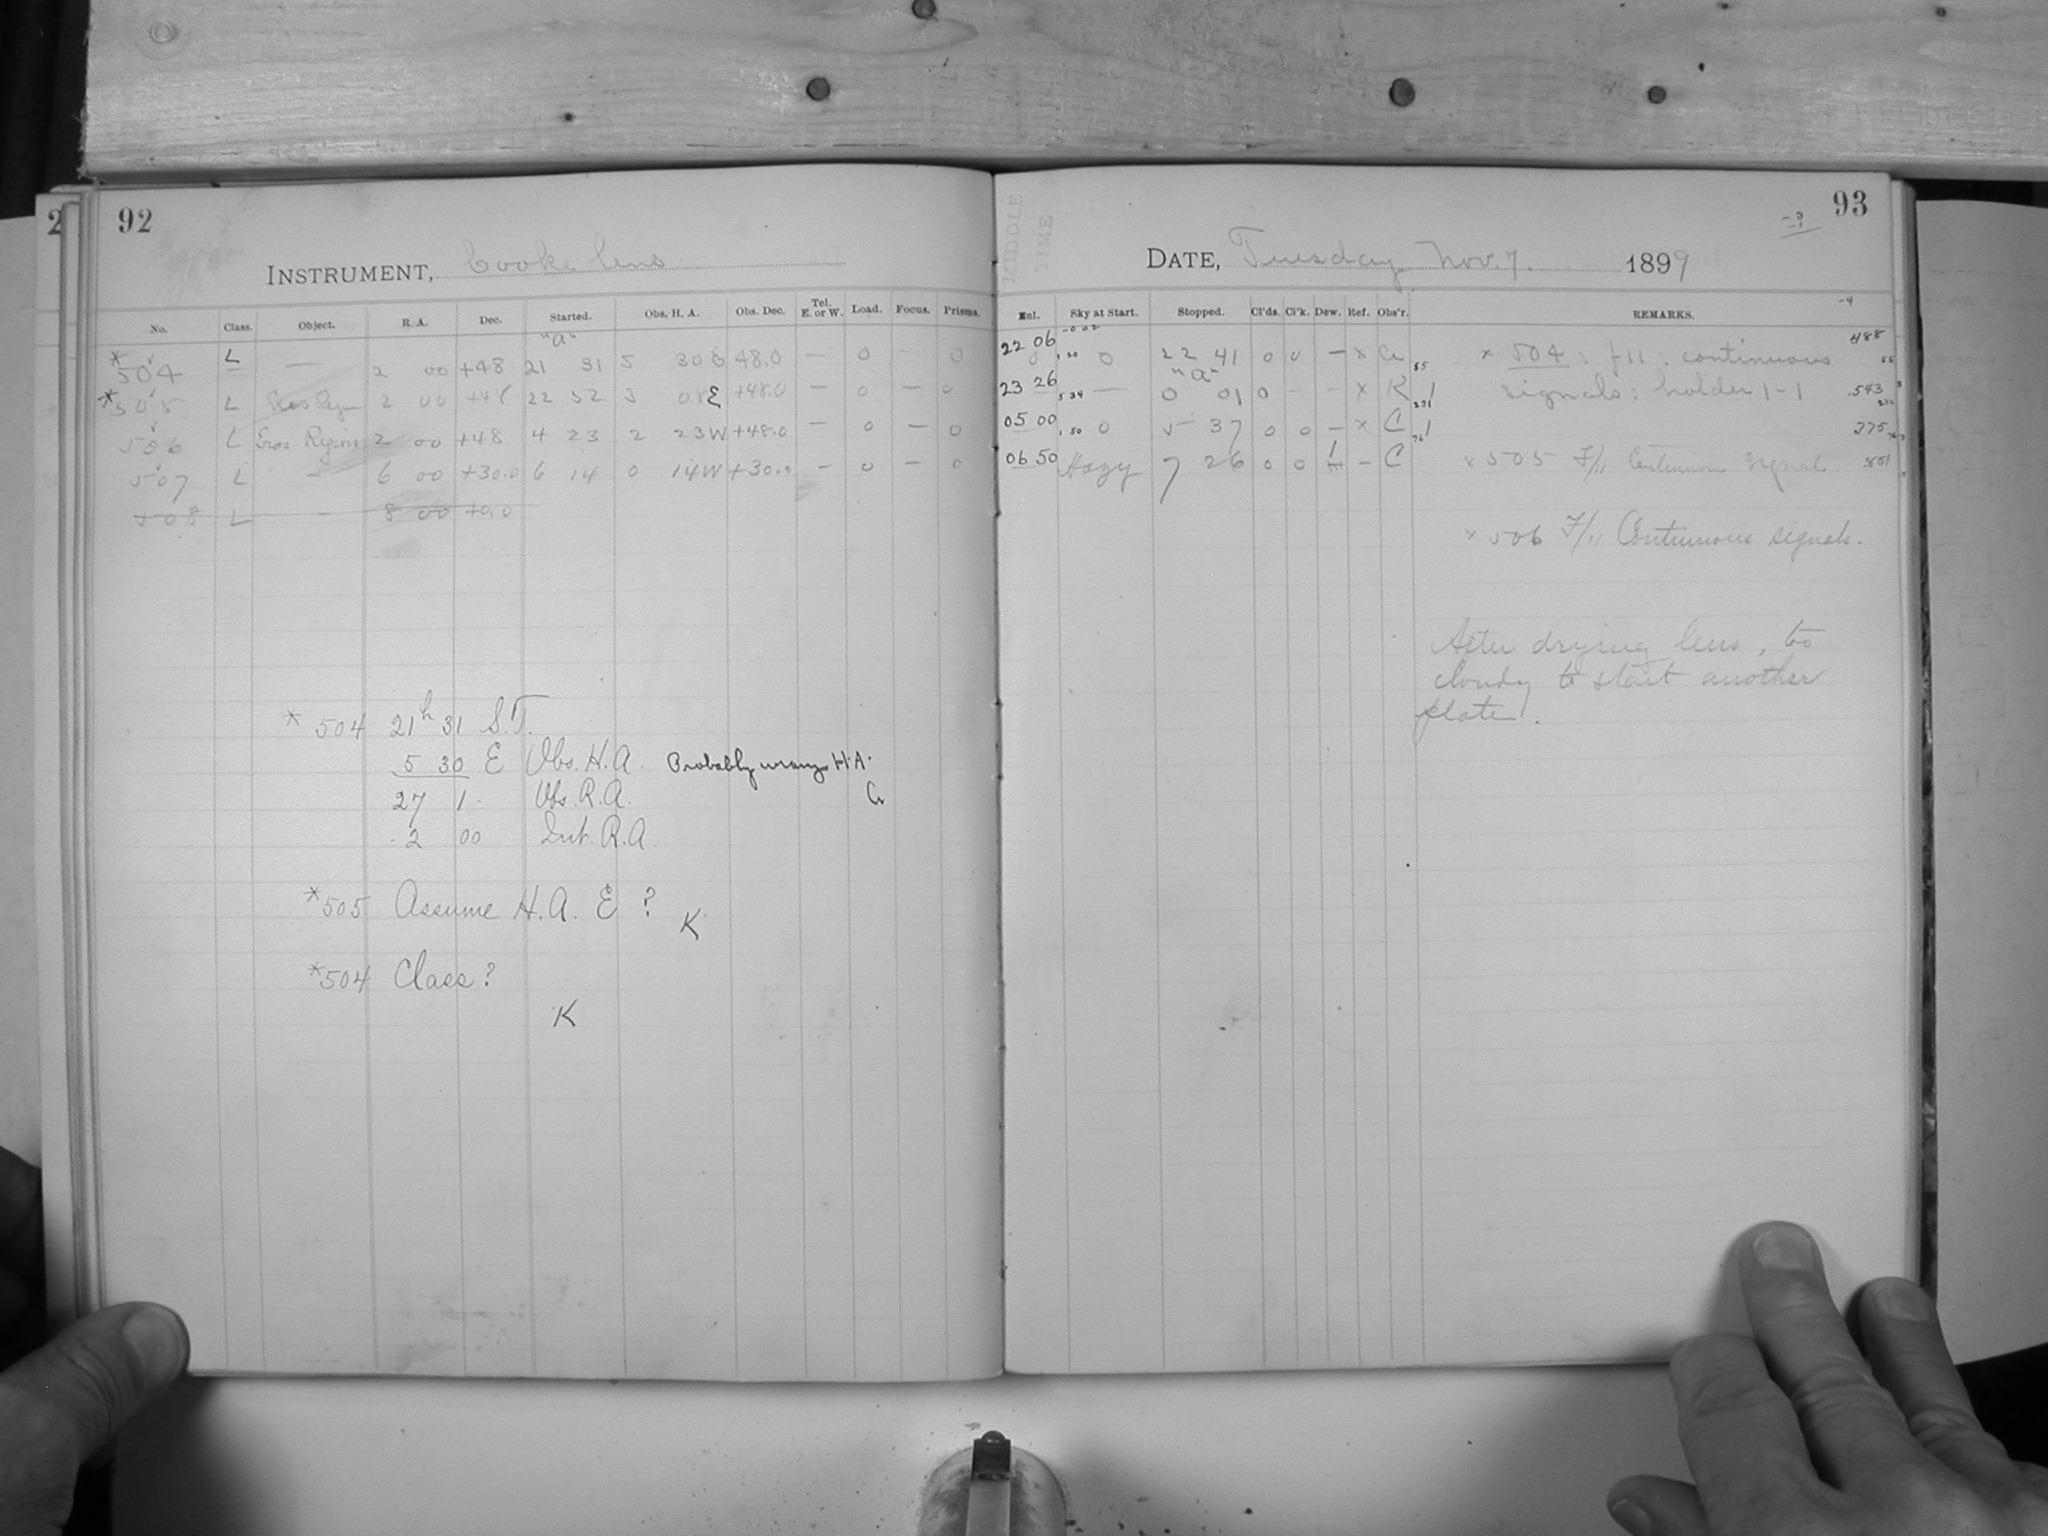 2
92
INSTRUMENT, Cooke lens
No. Class. Object. R. A. Dec. Started. Obs. H. A. Obs. Dec. Tel. E. or W. Load. Focus. Prisms.
"a"
*504 L — 2 00 +48 21 31 5 30 E 48.0 — 0 — 0
*505 L Eros Region 2 00 +48 22 52 3 08 E +48.0 — 0 — 0
506 L Eros Region 2 00 +48 4 23 2 23W +48.0 — 0 — 0
507 L — 6 00 +30.0 6 14 0 14W +30.0 — 0 — 0
508 L — 8 00 +0.0
* 504 21h 31 S.T.
5 30 E Obs. H.A. Probably wrong H.A.
27 1 Obs. R.A.
2 00 Int. R.A.
*505 Assume H.A. E ?
K
*504 Class?
K
93
MIDDLE
TIME
DATE, Tuesday Nov. 7. 1899
Enl. Sky at Start. Stopped. Cl'ds. Cl'k. Dew. Ref. Obs'r. REMARKS.
22 06 0 22 41 0 0 — x × 504 : f11 : continuous
"a"
23 26 — 0 01 0 - - x K signals: holder 1-1
05 00 0 5 37 0 0 — x C
06 50 Hazy 7 26 0 0 — C × 505 F/11 Continuous signal
× 506 F/11 Continuous signals.
After drying lens, to
cloudy to start another
plate.